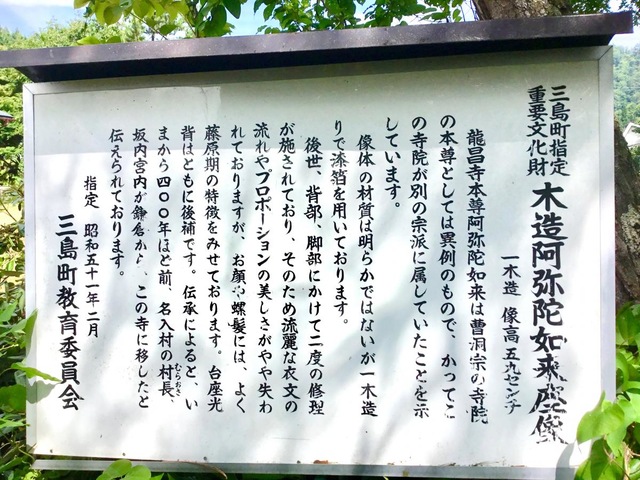 三島町指定
重要文化財
木造阿弥陀如来座像
一木造 像高五九センチ
龍昌寺本尊阿弥陀如来は曹洞宗の寺院
の本尊としては異例のもので、かってこ
の寺院が別の宗派に属していたことを示
しています。
像体の材質は明らかではないが一木造
りで漆箔を用いております。
後世、背部、脚部にかけて二度の修理
が施されており、そのため流麗な衣文の
流れやプロポーションの美しさがやや失わ
れておりますが、お顔や螺髪には、よく
藤原期の特徴をみせております。台座光
背はともに後補です。伝承によると、い
まから四〇〇年ほど前、名入村の村長、
むらおさ
坂内宮内が鎌倉から、この寺に移したと
伝えられております。
指定 昭和五十一年二月
三島町教育委員会